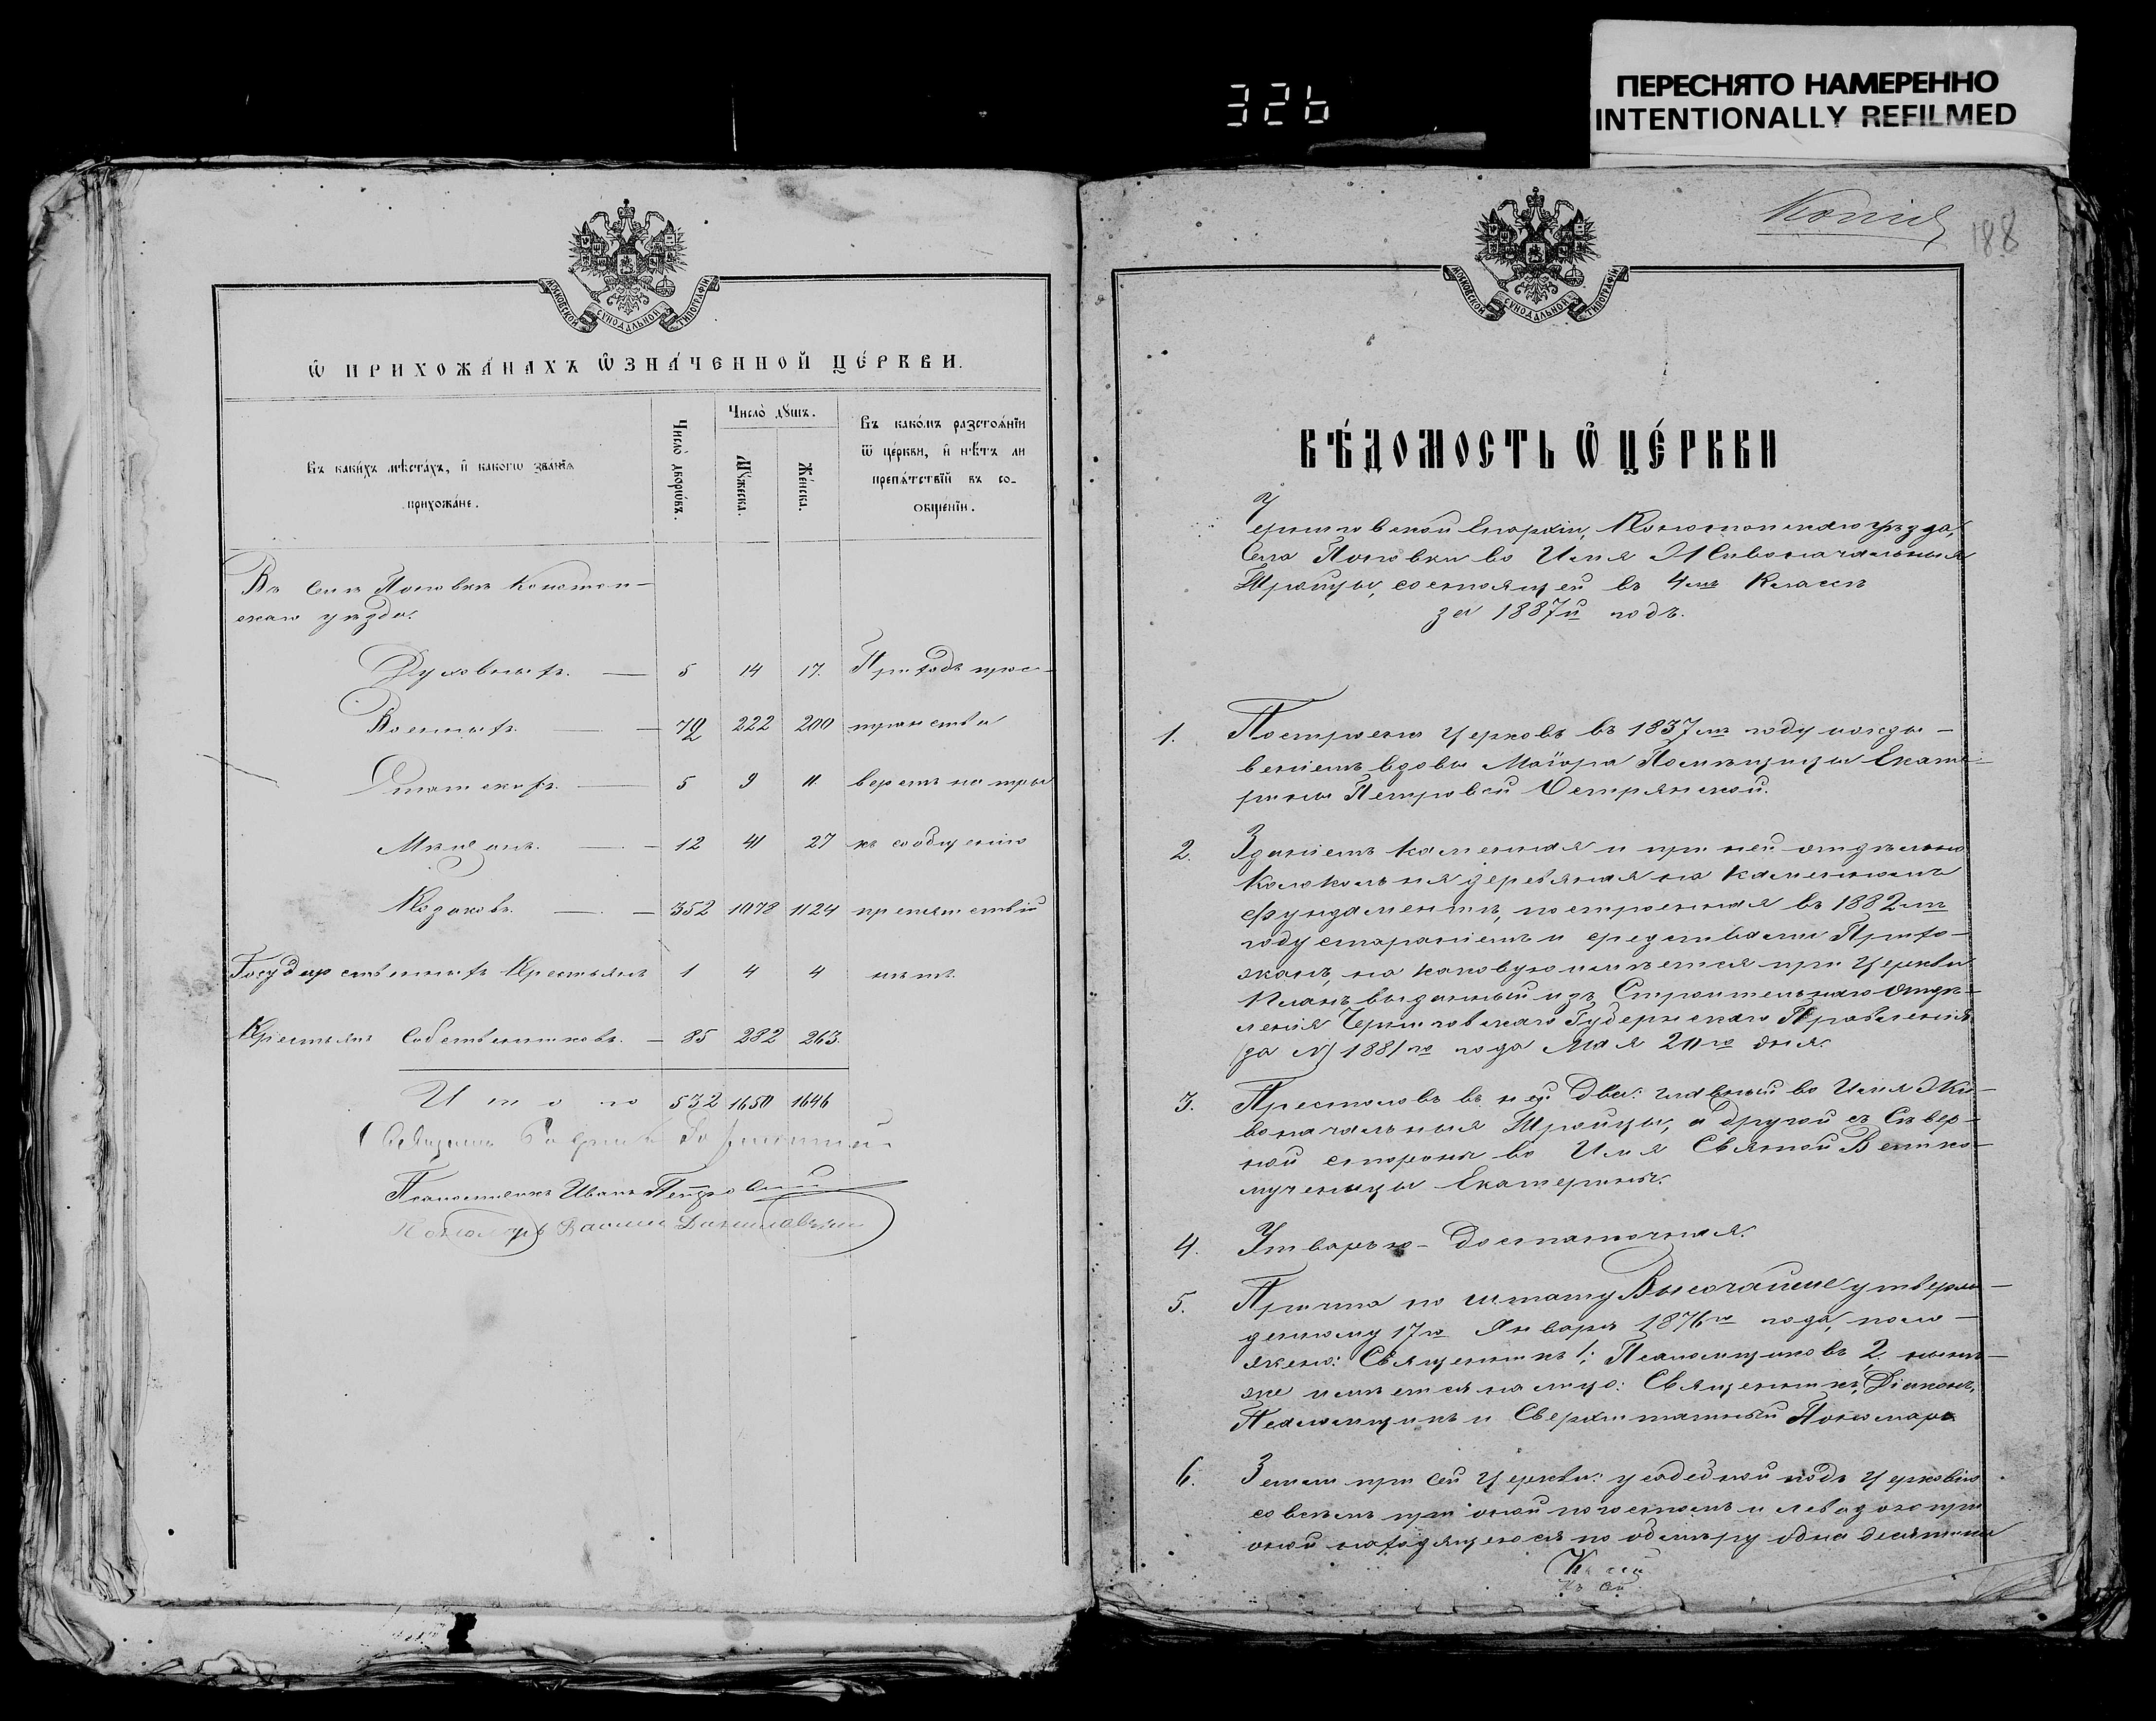 326
ПЕРЕСНЯТО НАМЕРЕННО
INTENTIONALLY REFILMED
МОСКОВСКОЙ СѴНОДАЛЬНОЙ ТИПОГРАФІИ
Ѡ ПРИХОЖА́НАХЪ Ѡ҆ЗНА́ЧЕННОЙ ЦЕ́РКВИ.
Въ каки́хъ мѣста́хъ, и҆ какогѡ зва́нїѧ
прихожа́не.
Число̀ дворѡ́въ.
Число̀ дꙋшъ.
Мꙋ́жеска.
Же́нска.
Въ како́мъ разстоѧ́нїи
ѿ це́ркви, и҆ нѣ́тъ ли
препѧ́тствїй въ со-
обще́нїи.
Въ селѣ Поповкѣ Конотоп-
скаго уѣзда:
Духовныхъ. — 5 14 17. Приходъ прос-
Военныхъ — 79 222 200 транствъ
Статскихъ. — 5 9 11 верстъ на три
Мѣщанъ. — 12 41 27 къ сообщенію
Козаковъ. — 352 1078 1124 препятствій
Государственныхъ Крестьянъ 1 4 4 нѣтъ.
Крестьянъ Собственниковъ. — 85 282 263.
Итого 532 1650 1646
Священникъ
Псаломщикъ Иванъ Петровскій
Пономарь Василій Даниловскій
Копія
188
МОСКОВСКОЙ СѴНОДАЛЬНОЙ ТИПОГРАФІИ
ВѢ́ДОМОСТЬ Ѡ҆ ЦЕ́РКВИ
Черниговской Епархіи, Конотопскаго уѣзда,
Села Поповки во Имя Живоначальныя
Тройцы, состоящей въ 4мъ Классѣ
за 1887й годъ.
1. Построена Церковь въ 1837мъ году иожди-
веніемъ вдовы Маіора Помѣщицы Екате-
рины Петровой Острянской.
2. Зданіемъ каменная и при ней отдѣльно
Колокольня деревяная на каменномъ
фундаментѣ, построенная въ 1882мъ
году стараніемъ и средствами Прихо-
жанъ, на каковую имѣется при Церкви
Планъ выданный изъ Строительнаго Отдѣ-
ленія Черниговскаго Губернскаго Правленія
(за N) 1881го года Мая 20го дня.
3. Престоловъ въ ней два: главный во Имя Жи-
воначальныя Тройцы, а другой съ Сѣвер-
ной стороны во Имя Святой Велико-
мученицы Екатерины.
4. Утварью - достаточная.
5. Причта по штату Высочайше утверж-
денному 17го Января 1876го года, поло-
жено: Священникъ 1; Псаломщиковъ 2. нынѣ-
же имѣется на лицо: Священникъ, Діаконъ,
Псаломщикъ и Сверхштатный Пономарь
6. Земли при сей Церкви: усадебной подъ Церковію
со всѣмъ при оной погостомъ и левадою при
оной находящеюся по обмѣру одна десятина
Къ сей
Къ сей